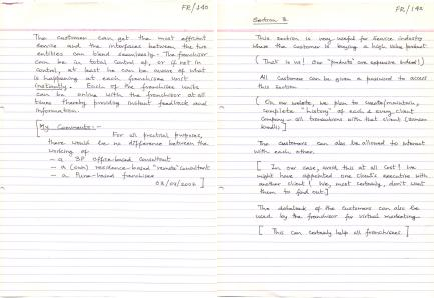 FR/140
The customer can get the most efficient
service and the interfaces between the two
entities can blend seamlessly. The franchisor
can be in total control of, or if not in
control, at least he can be aware of what
is happening at each franchise unit
instantly. Each of the franchise units
can be online with the franchisor at all
times thereby providing instant feedback and
information.
[ My Comments:-
For all practical purposes,
there would be no difference between the
working of
- a 3P office-based consultant
- a (own) residence-based "remote" consultant
- a Pune-based franchisee
03/09/2006 ]
FR/142
Section 3
This section is very useful for service industry
where the customer is buying a high value product
( That is us! Our "products" are expensive indeed! )
All customers can be given a password to access
this section
( On our website, we plan to create/maintain,
complete "history" of each & every client
company - all transactions with that client
The customers can also be allowed to interact
with each other.
[ In our case, avoid this at all cost! We
might have appointed one client's executive with
another client! We, most certainly, don't want
them to find out ]
The databank of the customers can also be
used by the franchisor for virtual marketing.
[ This can certainly help all franchisees ]